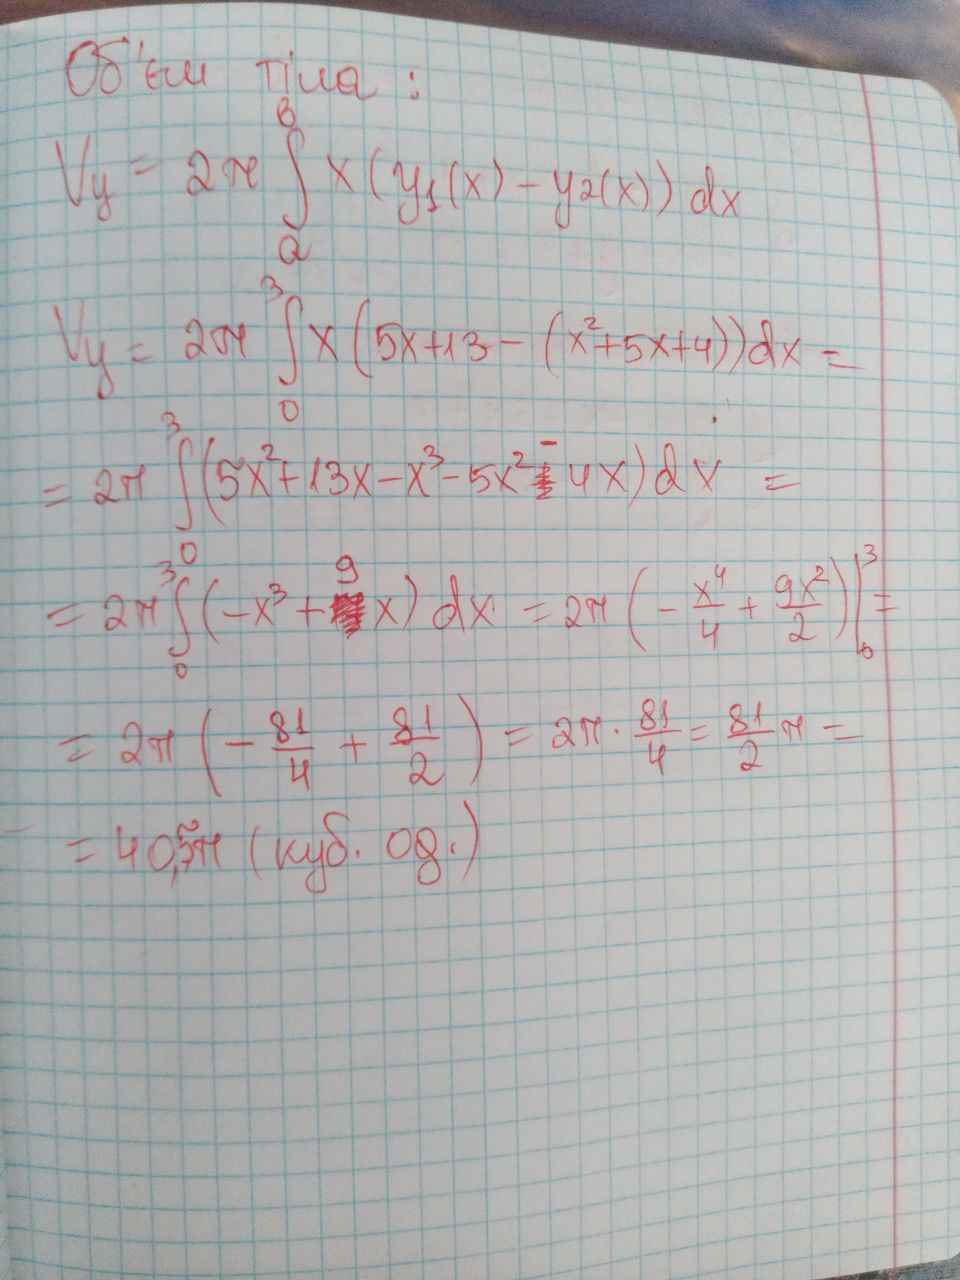 Об'єм тіла :
Vy = 2π ∫ₐᵇ x (y₁(x) - y₂(x)) dx
Vy = 2π ∫₀³ x (5x+13 - (x²+5x+4)) dx =
= 2π ∫₀³ (5x²+13x-x³-5x²-4x) dx =
= 2π ∫₀³ (-x³ + 9x) dx = 2π (- x⁴/4 + 9x²/2) |₀³ =
= 2π (- 81/4 + 81/2) = 2π · 81/4 = 81/2 π =
= 40,5π (куб. од.)